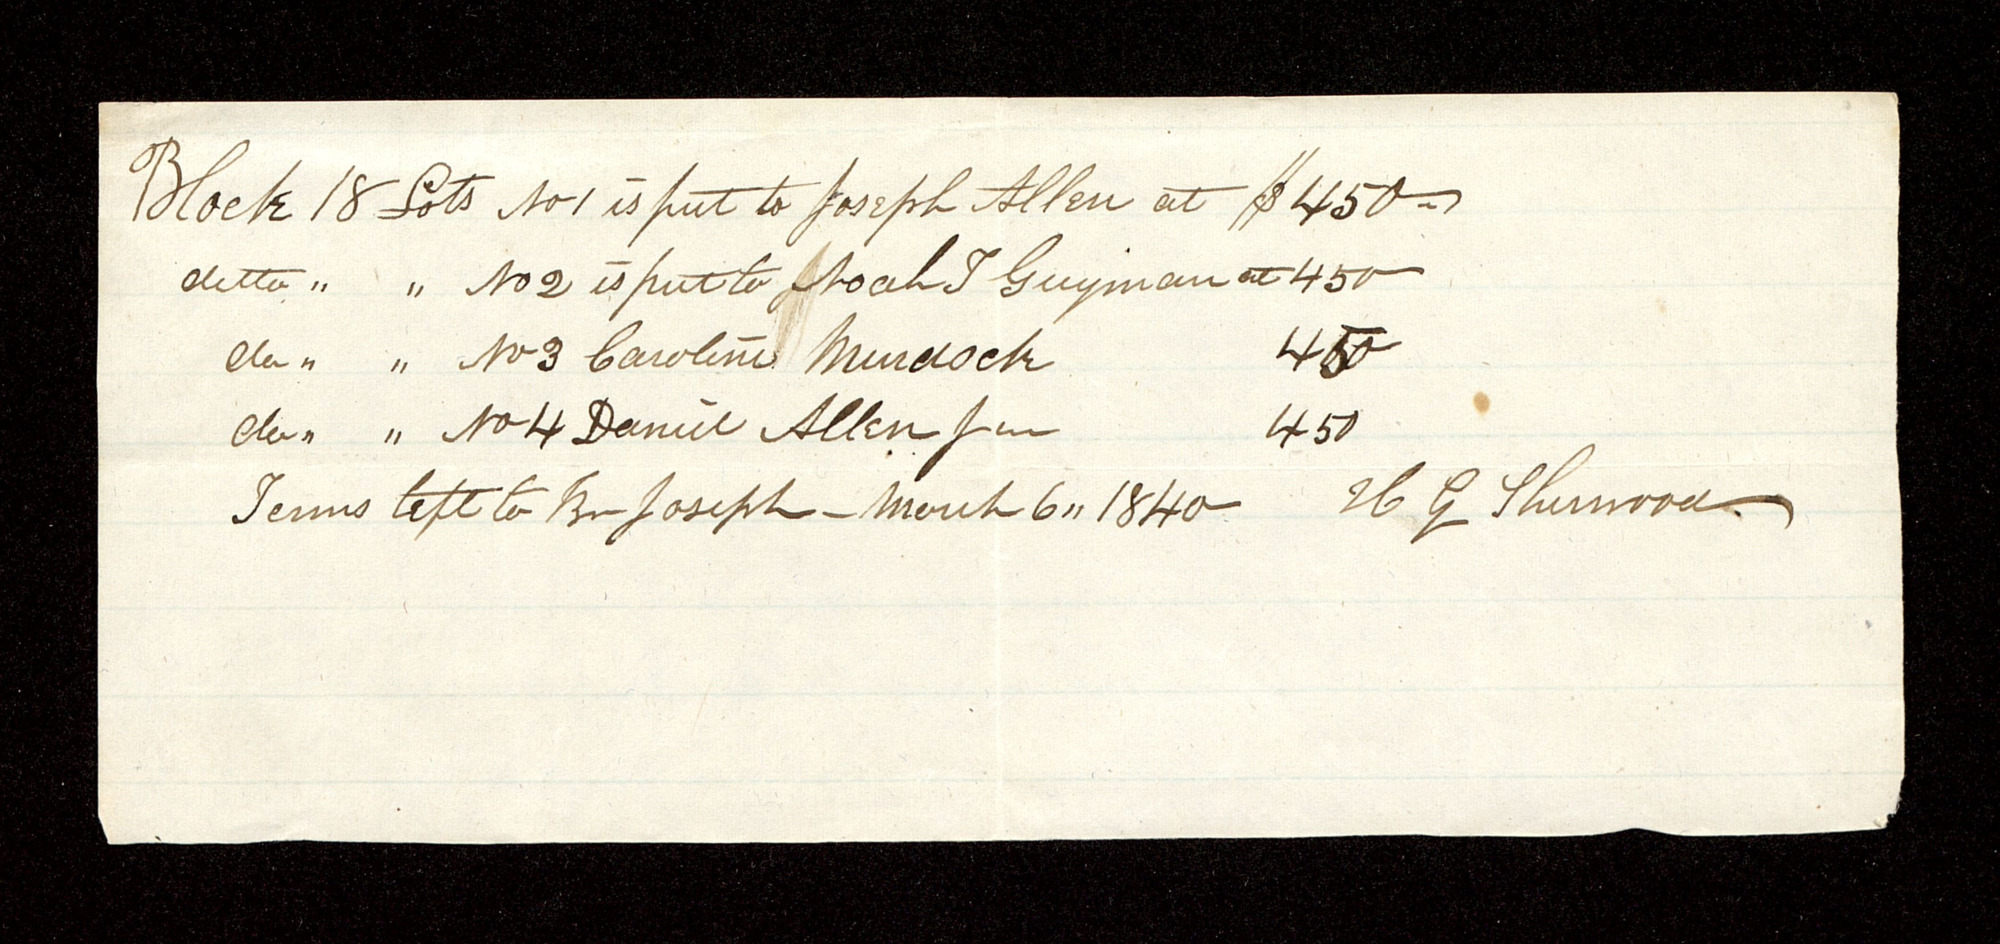 Block 18 Lots No 1 is put to Joseph Allen at $450–
ditto " " No 2 is put to Noah T Guyman at 450
do " " No 3 Caroline Murdock 450
do " " No 4 Daniel Allen Jun 450
Terms left to Br Joseph – March 6 " 1840 H G Sherwood